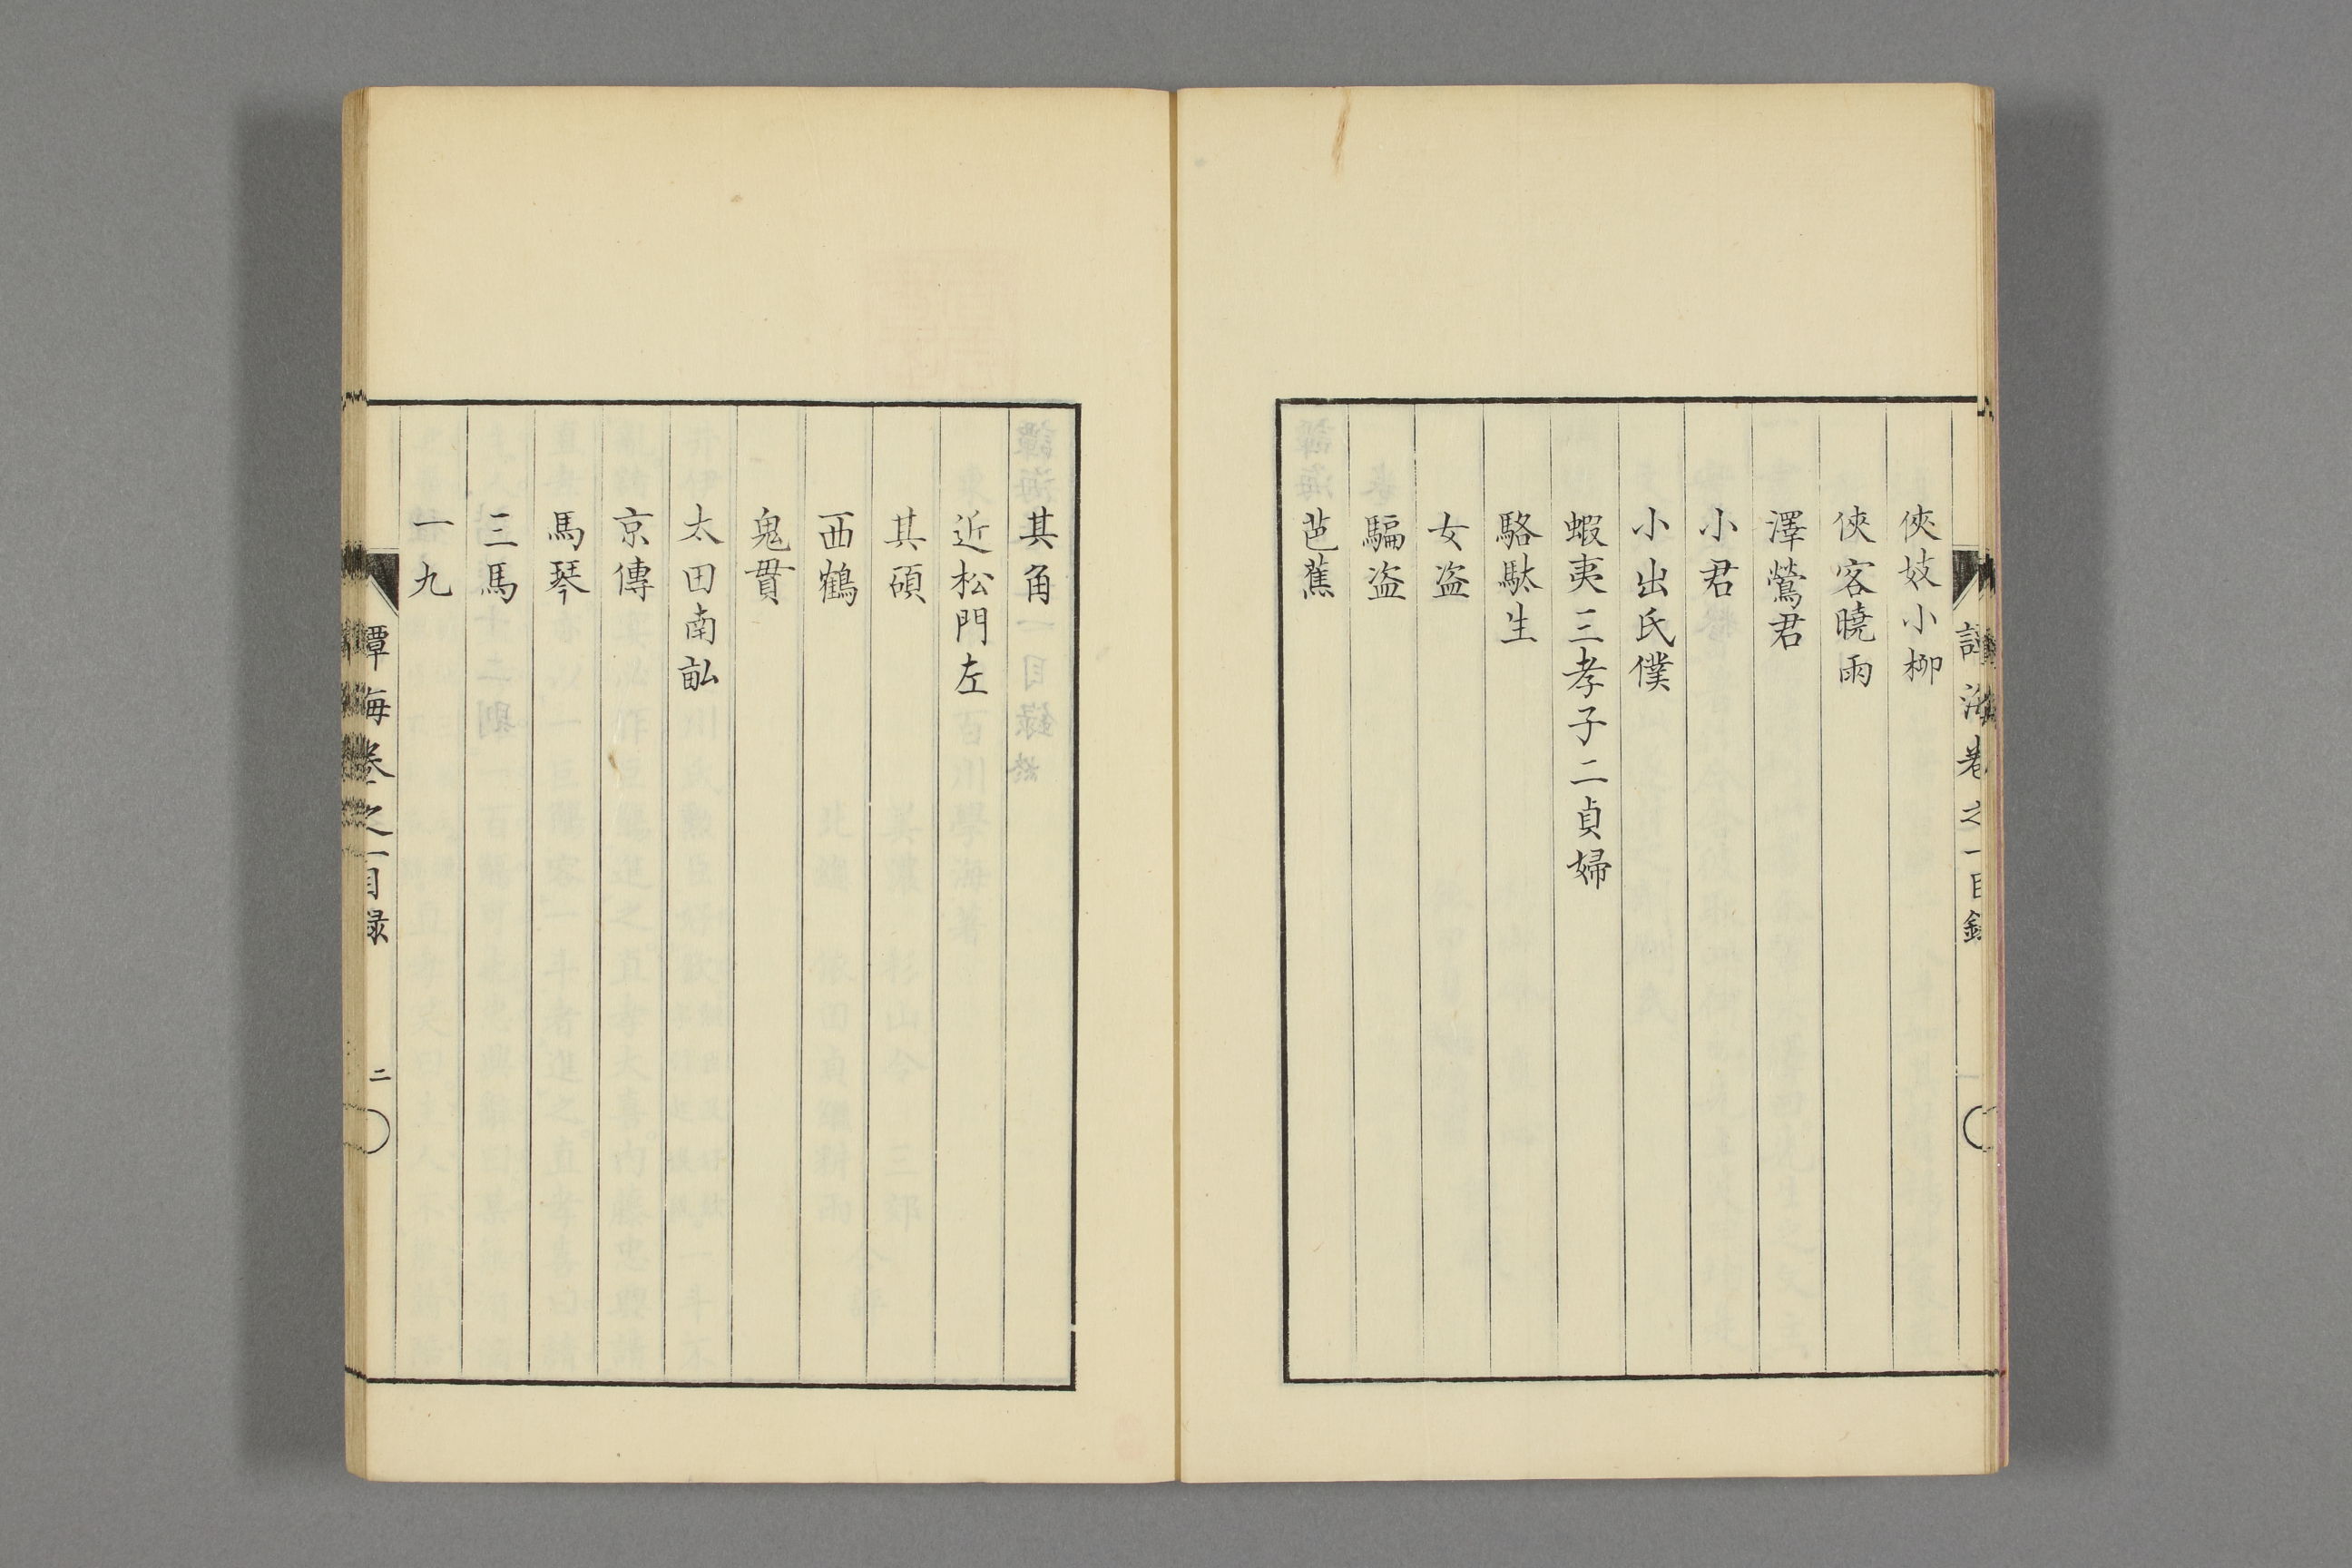 俠妓小柳
俠客曉雨
澤鶯君
小君
小出氏僕
蝦夷三孝子二貞婦
駱駄生
女盗
騙盗
芭蕉
其角
近松門左
其碩
西鶴
鬼貫
太田南畝
京傳
馬琴
三馬
一九
譚海卷之一目録
二